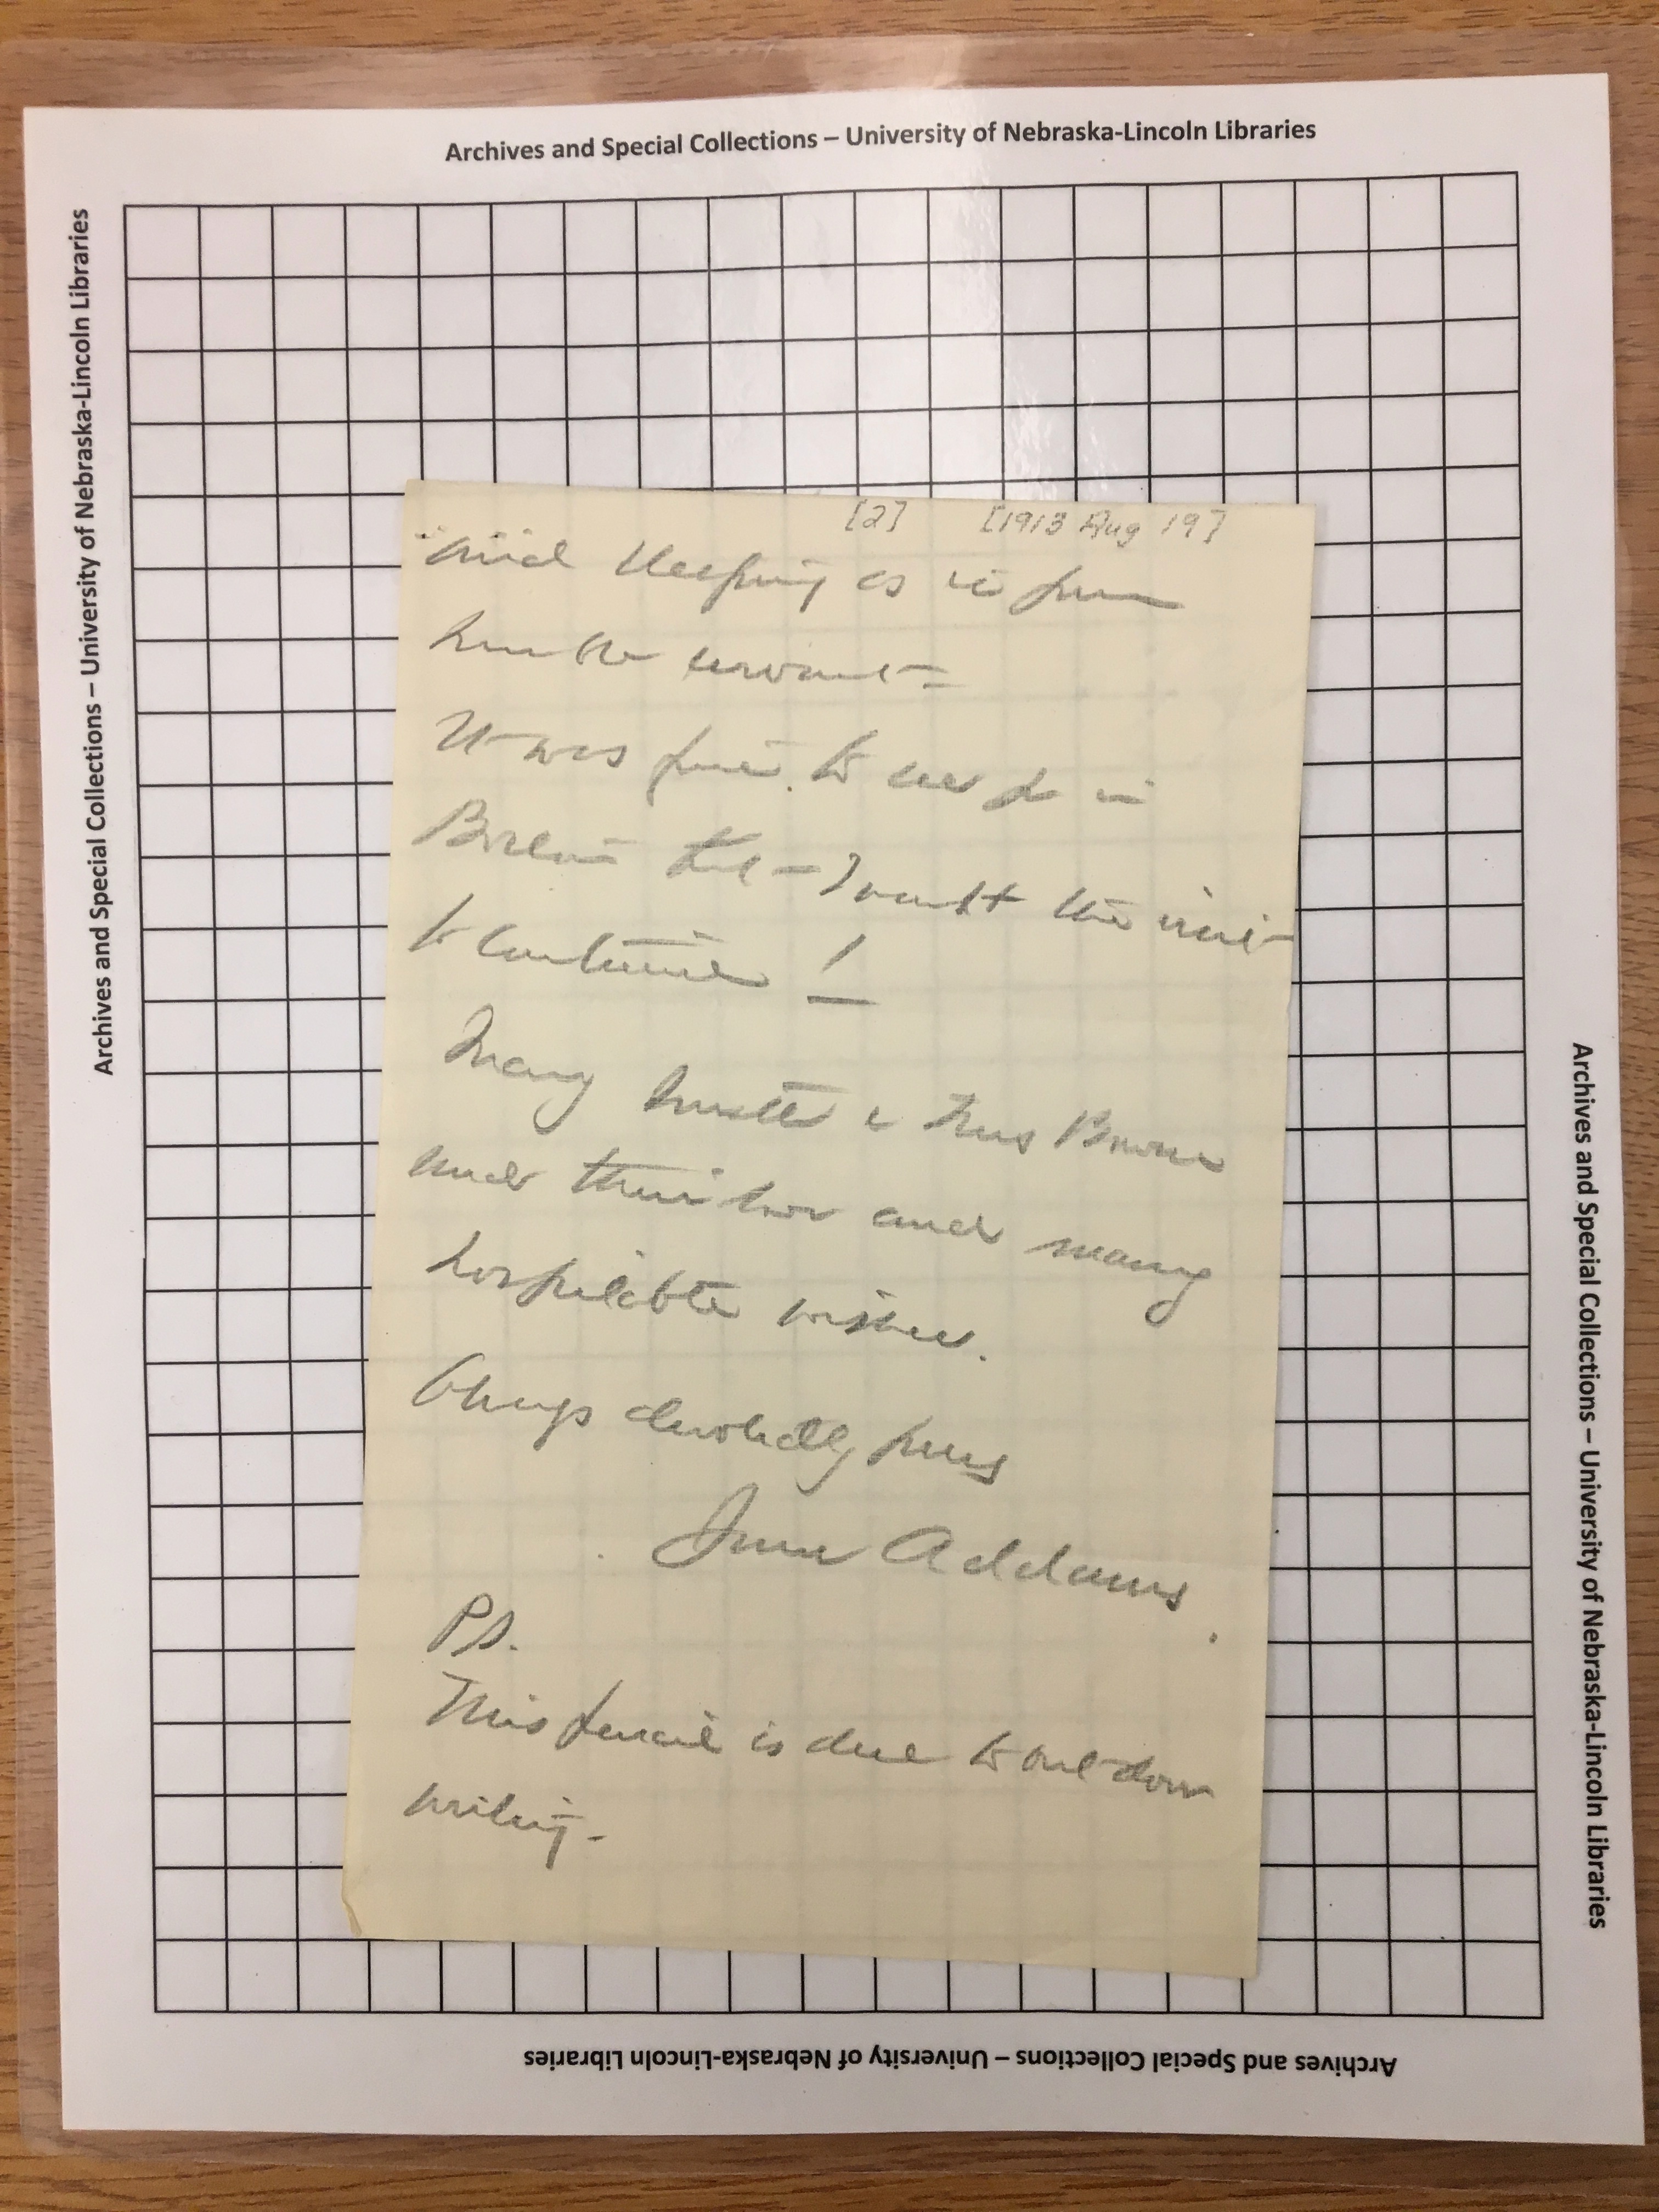 Archives and Special Collections – University of Nebraska-Lincoln Libraries
Archives and Special Collections – University of Nebraska-Lincoln Libraries
[2] [1913 Aug 19]
mind sleeping as is your
humble servant –
It was fine to see you in
this – I want the visit
to continue!
Many
under their and many
hospitable wishes.
Always devotedly yours
Jane Addams.
P.S.
This pencil is due to out door
writing –
Archives and Special Collections – University of Nebraska-Lincoln Libraries
Archives and Special Collections – University of Nebraska-Lincoln Libraries